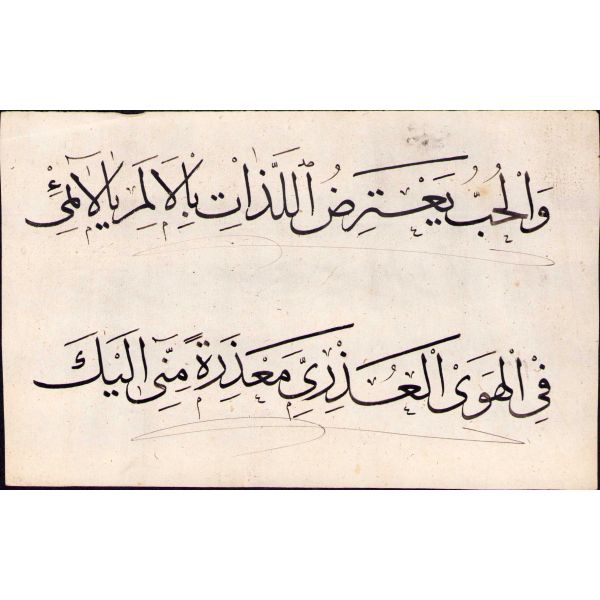 وَالْحُبُّ يَعْتَرِضُ اللَّذَاتِ بِالْاَلَمِ يَالَائِمِىْ
فِى الْهَوَى الْعُذْرِىِّ مَعْذِرَةً مِنِّى اِلَيْكَ